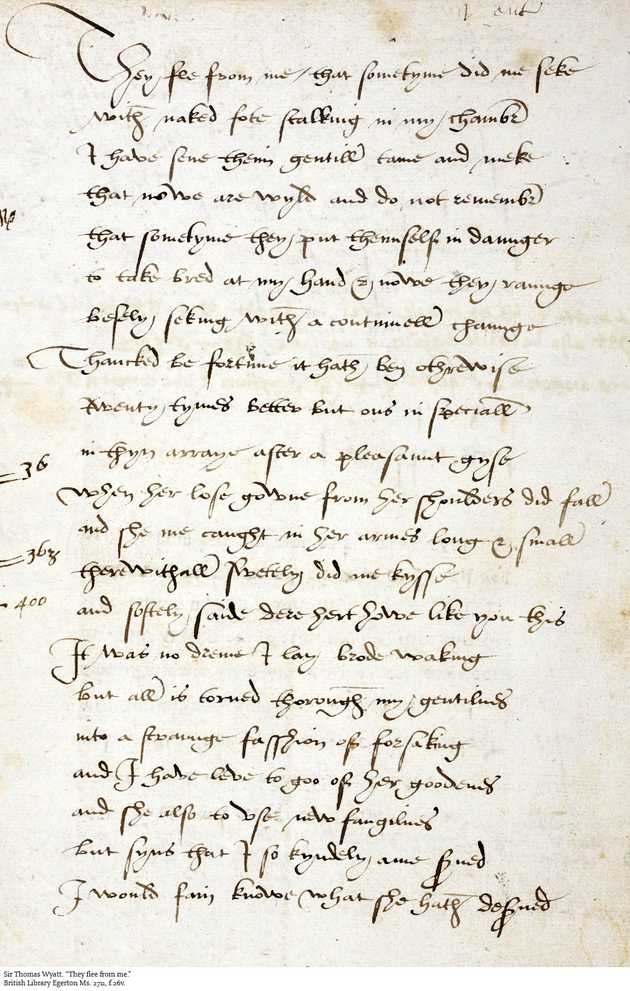 ent
They fle from me / that sometyme did me seke
with naked fote stalking in my chambr
I have sene theim gentill tame and meke
that nowe are wyld and do not remembr
that sometyme they put theimself in daunger
to take bred at my hand & nowe they raunge
besely seking with a continuell chaunge
Thancked be fortune it hath ben othrewise
twenty tymes better but ons in speciall
in thyn arraye after a pleasaunt gyse
36
When her lose gowne from her shoulders did fall
and she me caught in her armes long & small
363
therewithall swetely did me kysse
400
and softely saide dere hert howe like you this
It was no dreme I lay brode waking
but all is torned thorough my gentilnes
into a straunge fasshion of forsaking
and I have leve to goo of her goodenes
and she also to vse new fangilnes
but syns that I so kyndely ame sved
I would fain knowe what she hath desved
Sir Thomas Wyatt. "They flee from me."
British Library Egerton Ms. 2711, f 26v.